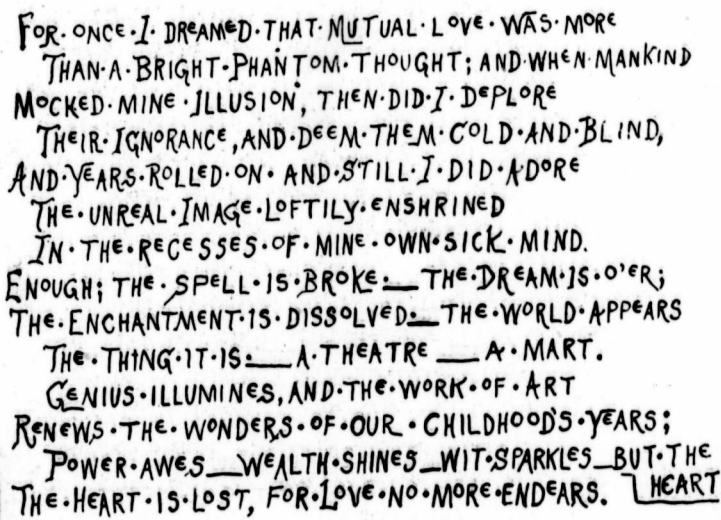 FOR·ONCE·I·DREAMED·THAT·MUTUAL·LOVE·WAS·MORE
THAN·A·BRIGHT·PHANTOM·THOUGHT; AND·WHEN·MANKIND
MOCKED·MINE·ILLUSION, THEN·DID·I·DEPLORE
THEIR·IGNORANCE, AND·DEEM·THEM·COLD·AND·BLIND,
AND·YEARS·ROLLED·ON·AND·STILL·I·DID·ADORE
THE·UNREAL·IMAGE·LOFTILY·ENSHRINED
IN·THE·RECESSES·OF·MINE·OWN·SICK·MIND.
ENOUGH; THE·SPELL·IS·BROKE·__ THE·DREAM·IS·O'ER;
THE·ENCHANTMENT·IS·DISSOLVED·__ THE·WORLD·APPEARS
THE·THING·IT·IS·__ A·THEATRE __ A·MART.
GENIUS·ILLUMINES, AND·THE·WORK·OF·ART
RENEWS·THE·WONDERS·OF·OUR·CHILDHOOD'S·YEARS;
POWER·AWES__WEALTH·SHINES__WIT·SPARKLES__BUT·THE
THE·HEART·IS·LOST, FOR·LOVE·NO·MORE·ENDEARS. HEART